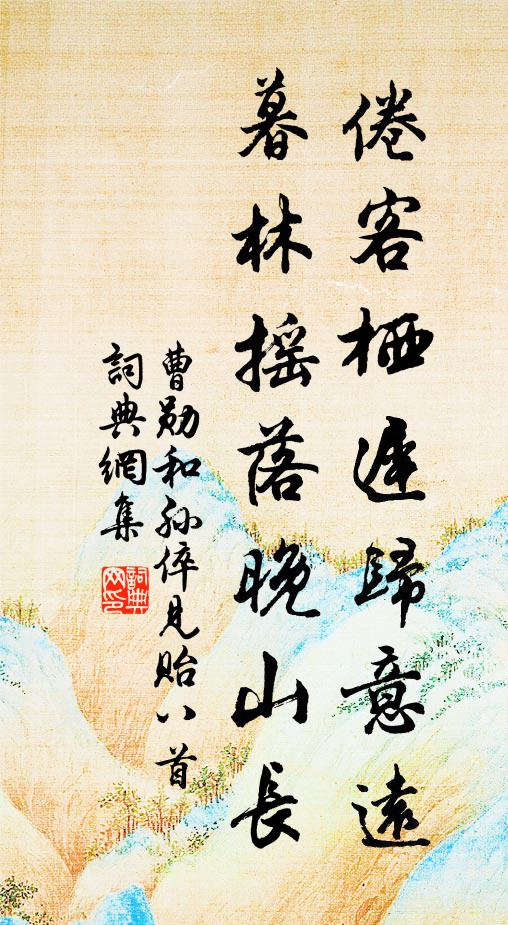 倦客栖遲歸意遠
暮林摇落晚山長
曹勛和孙倅見貽八首
詞典網集
詞典
网印